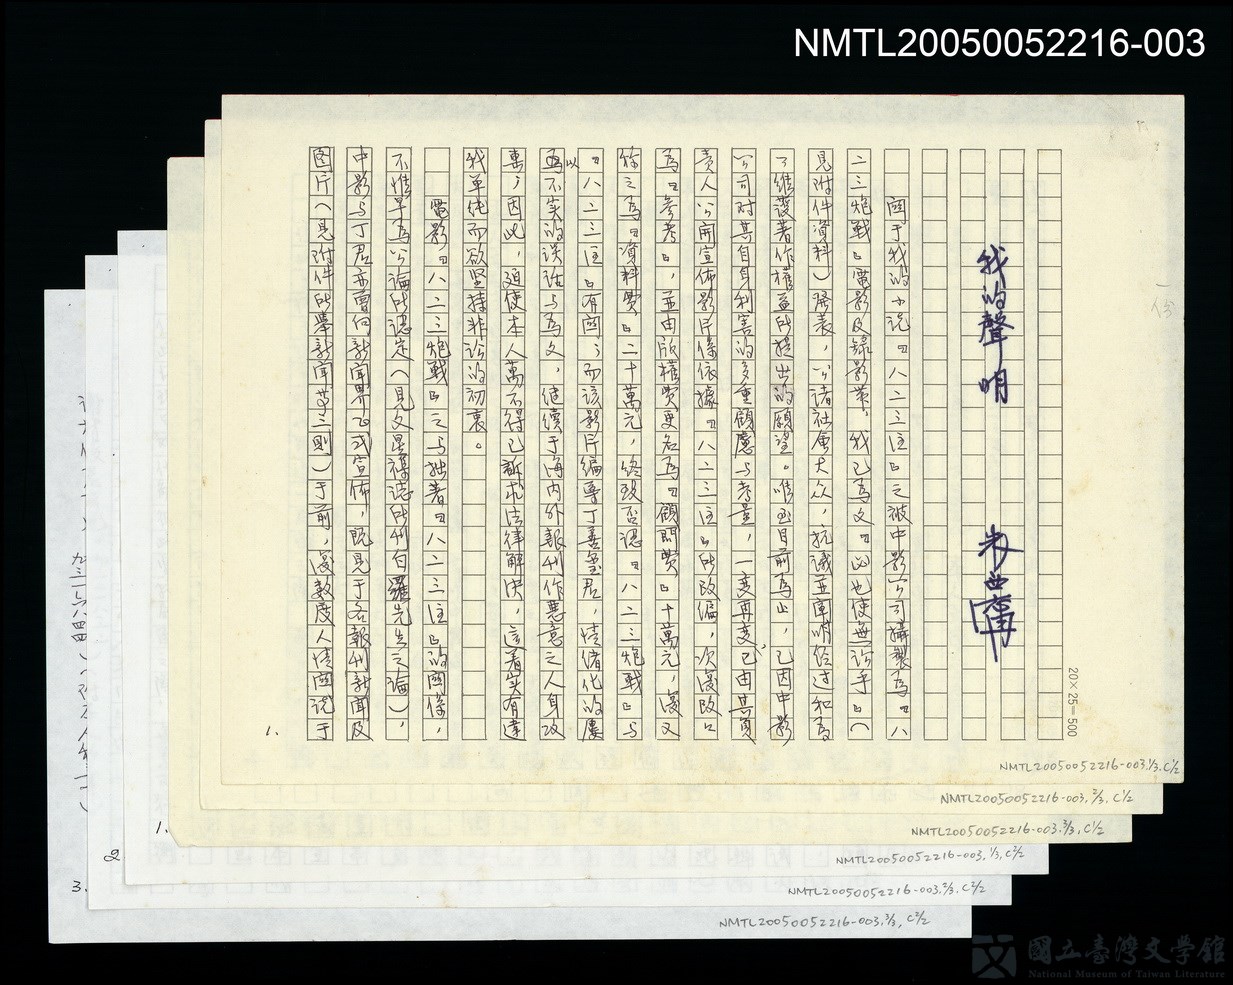 NMTL20050052216-003
我的聲明　朱西甯
關于我的小說『八二三注』之被中影公司攝製為『八
二三炮戰』電影及錄影帶，我已為文『此也使無訟乎』（
見附件資料）發表，公諸社會大众，抗議並闡明經過和為
了維護著作權益所提出的願望。唯至目前為止，已因中影
公司對其自身利害的多重顧慮与考量，一变再变，已由其負
責人公開宣佈影片係依據『八二三注』所改編，次復改口
為『參考』，並由版權費更名為『顧問費』十萬元，復又
稱之為『資料費』二十萬元，終致否認『八二三炮戰』与
『八二三注』有關；而該影片編導丁善璽君，情緒化的屢
以
為不实的談話与為文，継续于海內外報刊作惡意之人身攻
訐，因此，迫使本人萬不得已訴求法律解決，這着实有違
我單純而欲坚持非訟的初衷。
電影『八二三炮戰』之与拙著『八二三注』的關係，
不惟早為公論所認定（見文星襍誌所刊白羅先生之論），
中影与丁君亦曾向新聞界正式宣佈，既見于各報刊新聞及
图片（見附件所舉新聞等三則）于前，復數度人情關說于
1.
20×25＝500
NMTL20050052216-003.1/3.C1/2
NMTL20050052216-003.2/3,C1/2
NMTL20050052216-003.3/3,C1/2
NMTL20050052216-003,1/3,C2/2
NMTL20050052216-003.2/3,C2/2
NMTL20050052216-003.3/3,C2/2
1.
2
3.
國立臺灣文學館
National Museum of Taiwan Literature